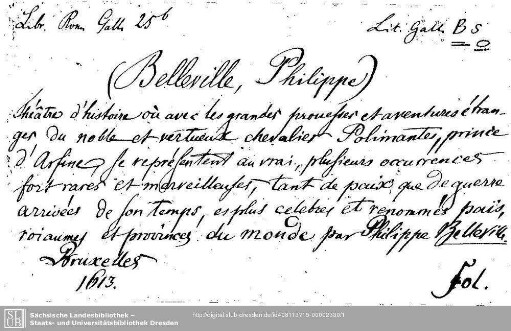 Libr. Rom. Gall. 25b
Lit. Gall. B s
(Belleville, Philippe)
Théâtre d'histoire où avec les grandes prouesses et aventures étran-
ges du noble et vertueux chevalier Polimantes, prince
d'Arfine, se représentent au vrai, plusieurs occurrences
fort rares et merveilleuses, tant de paix, que de guerre
arrivées de son temps, es plus celebres et renommés païs,
roiaumes et provinces du monde par Philippe Belleville.
Bruxelles
1613.
Fol.
Sächsische Landesbibliothek –
Staats- und Universitätsbibliothek Dresden